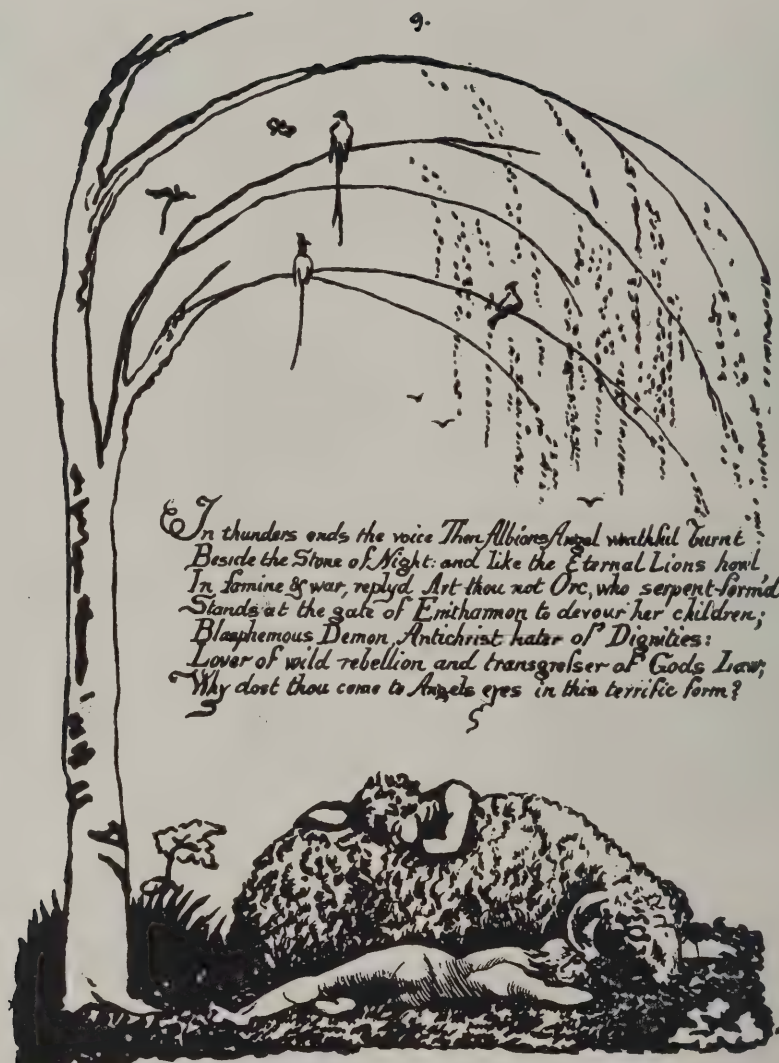 9.
In thunders ends the voice Then Albions Angel wrathful burnt
Beside the Stone of Night: and like the Eternal Lions howl
In famine & war, replyd Art thou not Orc, who serpent-form'd
Stands at the gate of Enitharmon to devour her children;
Blasphemous Demon, Antichrist hater of Dignities:
Lover of wild rebellion and transgrefser of Gods Law;
Why dost thou come to Angels eyes in this terrific form?